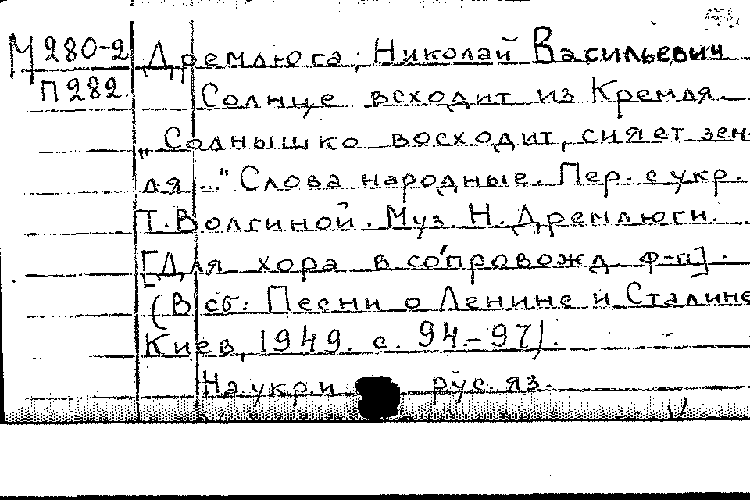 М280-2 Дремлюга, Николай Васильевич
П282 Солнце всходит из Кремля.
„Солнышко восходит, сияет зем-
ля..." Слова народные. Пер. с укр.
Т. Волгиной. Муз Н. Дремлюги.
[Для хора в сопровожд ф-п].
(В сб: Песни о Ленине и Сталине
Киев, 1949. с. 94-97).
На укр. и рус. яз.